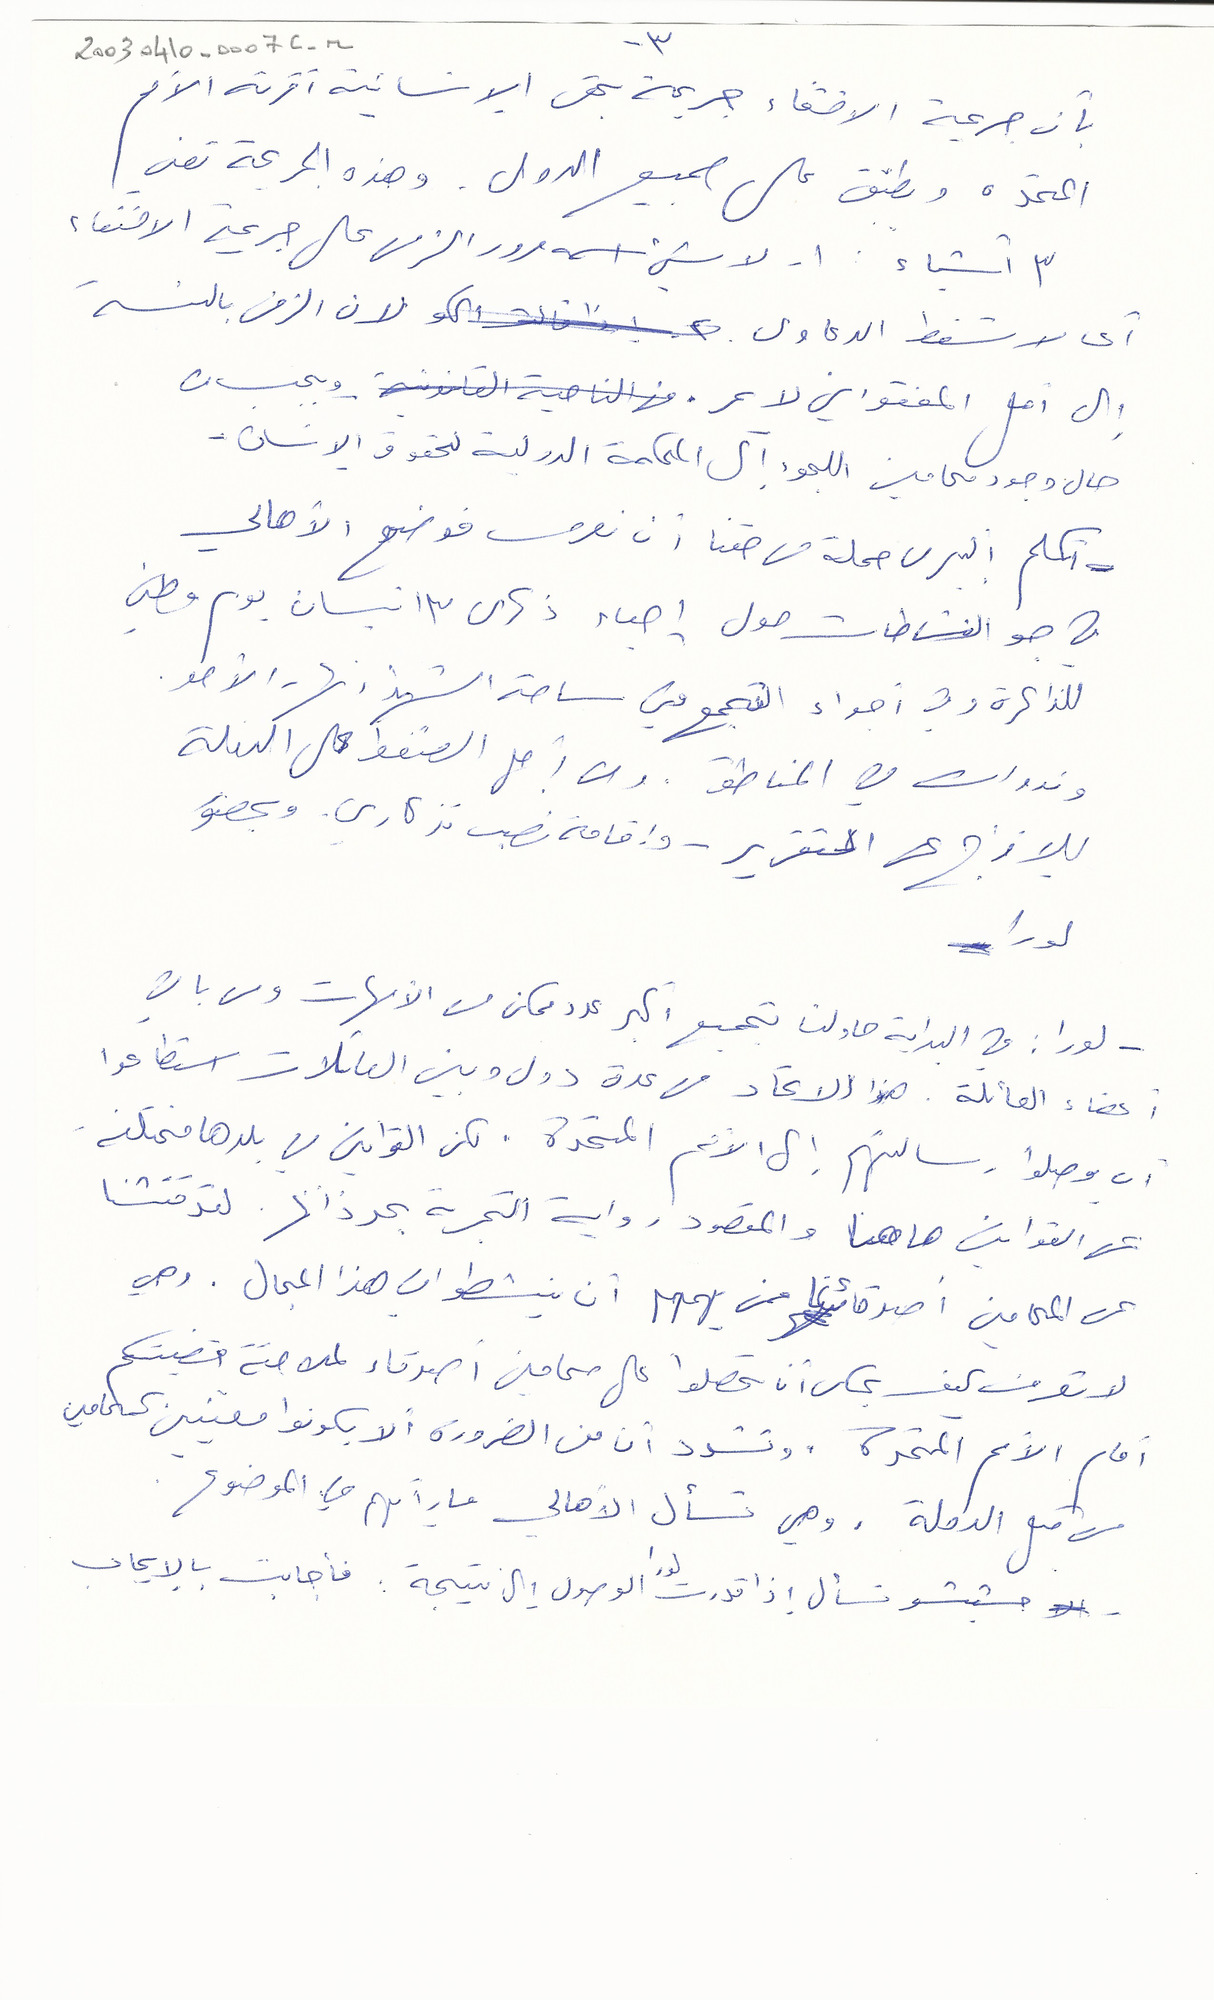 20030410_0007C_r
-٣
بأن جريمة الاختفاء جريمة بحق الإنسانية أقرته الأمم
المتحدة وتطبّق على جميع الدول. وهذه الجريمة تعني
٣ أشياء: ١- لا شيء اسمه مرور الزمن على جريمة الاختفاء
أي لا تسقط الدعاوى. لان الزمن بالنسبة
إلى أهل المفقودين لا يمر. من الناحية القانونية - ويجب
حال وجود محامين اللجوء إلى المحكمة الدولية لحقوق الإنسان -
- أكبر حملة من حقنا أن نعرف فوضع الأهالي
في جو النشاطات حول إحياء ذكرى ١٣ نيسان يوم وطني
للذاكرة وفي أجواء التجمع في ساحة الشهداء نهار الأحد.
وندوات في المناطق. ومن أجل الضغط على الدولة
للإفراج عن التقرير - وإقامة نصب تذكاري.
لورا
- لورا: في البداية حاولنا تجميع أكبر عدد ممكن من الأمهات ومن باقي
أعضاء العائلة. هذا الاتحاد من عدة دول وبين العائلات استطاعوا
أن يوصلوا رسالتهم إلى الأمم المتحدة. لكن القوانين في بلدها مختلفة
عن القوانين هاهنا والمقصود رواية التجربة بحد ذاتها. لقد فتشنا
عن المحامين أصدقائنا من يهمهم أن ينشطوا في هذا المجال. وهي
لا تعرف كيف يمكن أن تحصلوا على محامين أصدقاء لملاحقة قضيتكم
أمام الأمم المتحدة. وتشدد أن من الضرورة ألا يكونوا معينين كمحامين
من قبل الدولة. وهي تسأل الأهالي ما رأيهم في الموضوع.
- تسأل إذا قدرت لورا الوصول إلى نتيجة. فأجابت بالإيجاب